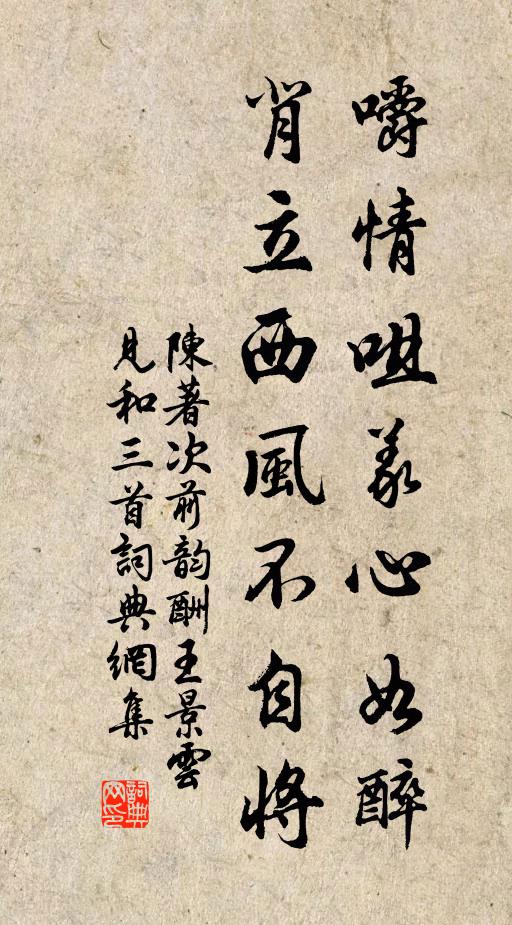 嚼情咀義心如醉
背立西風不自將
陳著次前韵酬王景雲
見和三首詞典網集
詞典
网印